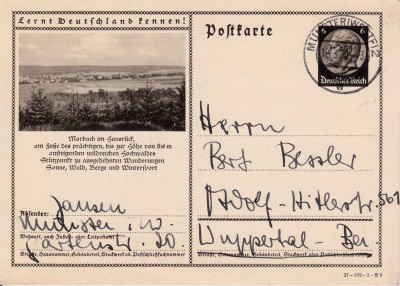 Lernt Deutschland kennen!
Morbach im Hunsrück,
am Fuße des prächtigen, bis zur Höhe von 816 m
ansteigenden wildreichen Hochwaldes
Stützpunkt zu ausgedehnten Wanderungen
Sonne, Wald, Berge und Wintersport
Absender: Jansen
Münster i. W.
Wohnort, auch Zustell- oder Leitpostamt
Gartenstr. 20.
Straße, Hausnummer, Gebäudeteil, Stockwerk od. Postschließfachnummer
Postkarte
MÜNSTER (WESTF) 2
6 6
Deutsches Reich
Herrn
Bert Bessler
Adolf-Hitlerstr. 561
Wuppertal-Ba.
Straße, Hausnummer, Gebäudeteil, Stockwerk oder Postschließfachnummer